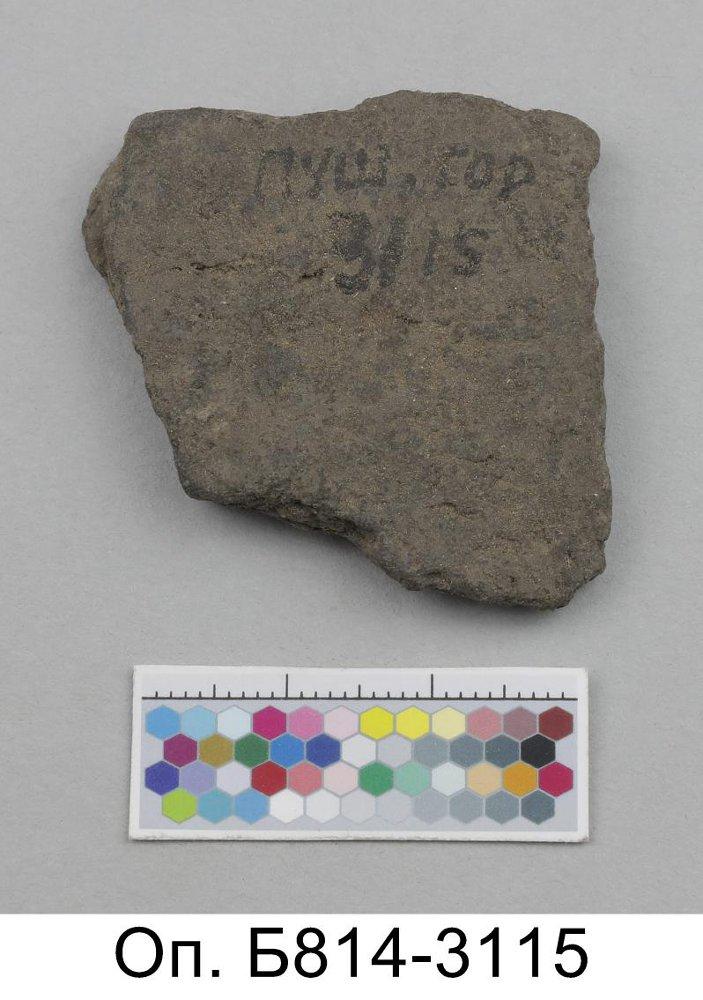 ПУШ. ГОР
3/15
Оп. Б814-3115